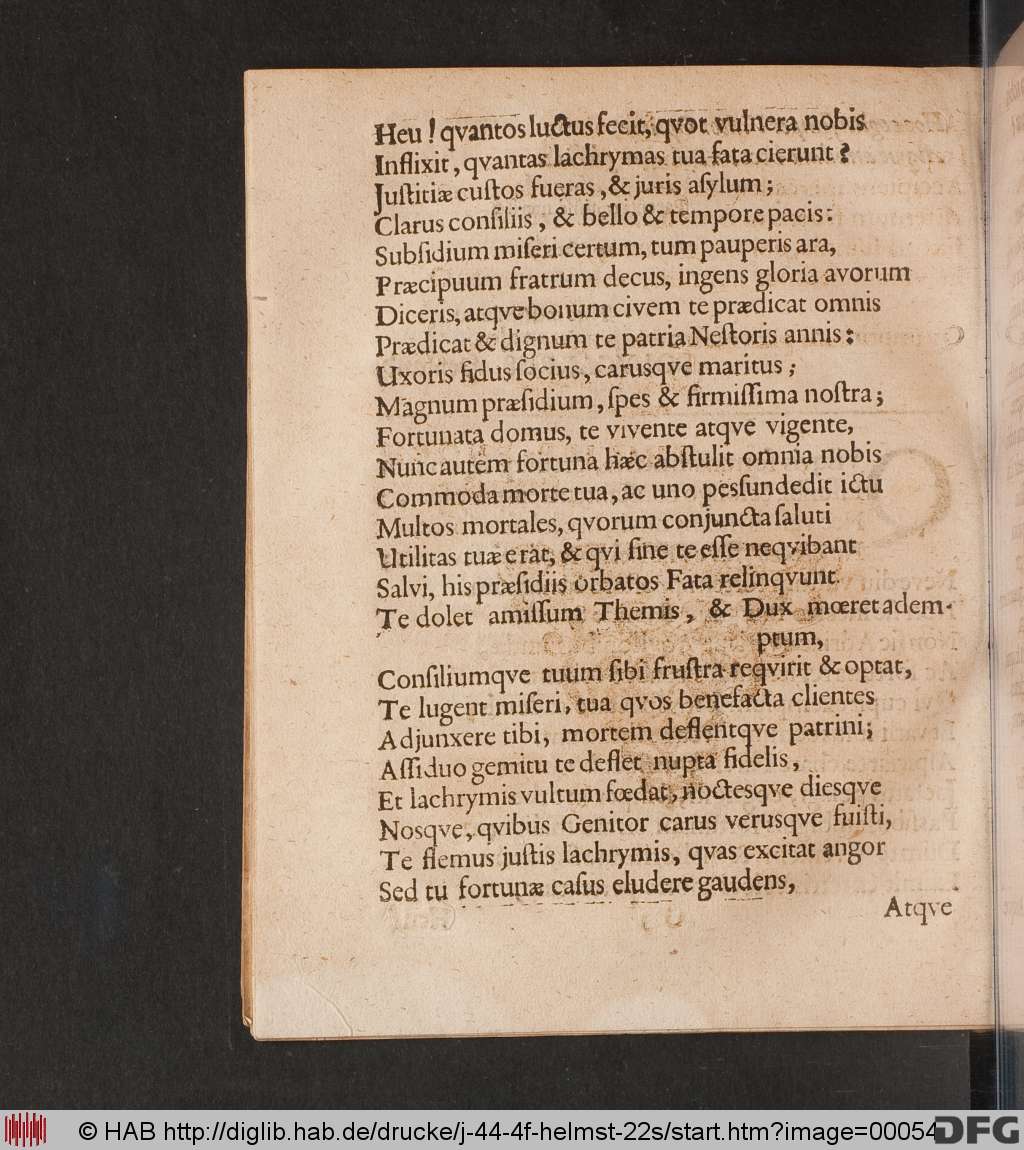 Heu ! qvantos luctus fecit, qvot vulnera nobis
Inflixit, qvantas lachrymas tua fata cierunt ?
Juſtitiæ cuſtos fueras, & juris aſylum;
Clarus conſiliis, & bello & tempore pacis:
Subſidium miſeri certum, tum pauperis ara,
Præcipuum fratrum decus, ingens gloria avorum
Diceris, atqve bonum civem te prædicat omnis
Prædicat & dignum te patria Neſtoris annis:
Uxoris fidus ſocius, carusqve maritus;
Magnum præſidium, ſpes & firmiſſima noſtra;
Fortunata domus, te vivente atqve vigente,
Nunc autem fortuna hæc abſtulit omnia nobis
Commoda morte tua, ac uno pesſundedit ictu
Multos mortales, qvorum conjuncta ſaluti
Utilitas tuæ erat, & qvi ſine te eſſe neqvibant
Salvi, his præſidiis orbatos Fata relinqvunt.
Te dolet amiſſum Themis, & Dux mœret adem-
ptum,
Conſiliumqve tuum ſibi fruſtra reqvirit & optat,
Te lugent miſeri, tua qvos benefacta clientes
Adjunxere tibi, mortem deflentqve patrini;
Aſſiduo gemitu te deflet nupta fidelis,
Et lachrymis vultum fœdat, noctesqve diesqve
Nosqve, qvibus Genitor carus verusqve fuiſti,
Te flemus juſtis lachrymis, qvas excitat angor
Sed tu fortunæ caſus eludere gaudens,
Atqve
© HAB http://diglib.hab.de/drucke/j-44-4f-helmst-22s/start.htm?image=00054
DFG